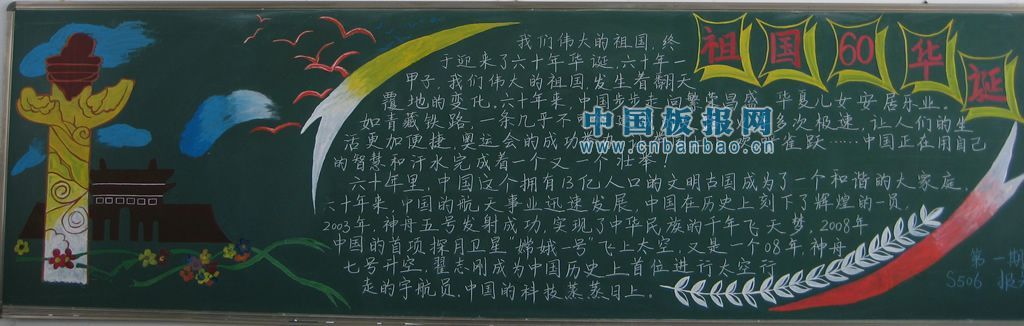 祖国60华诞
我们伟大的祖国,终
于迎来了六十年华诞,六十年一
甲子,我们伟大的祖国,发生着翻天
覆地的变化,六十年来,中国步步走向繁荣昌盛,华夏儿女安居乐业。
如青藏铁路,一条几乎不 多次极速,让人们的生
活更加便捷,奥运会的成功 雀跃……中国正在用自己
的智慧和汗水完成着一个又一个壮举!
六十年里,中国这个拥有13亿人口的文明古国成为了一个和谐的大家庭。
六十年来,中国的航天事业迅速发展,中国在历史上刻下了辉煌的一页,
2003年,神舟五号发射成功,实现了中华民族的千年飞天梦,2008年
中国的首项探月卫星"嫦娥一号"飞上太空,又是一个08年,神舟
七号升空,翟志刚成为中国历史上首位进行太空行
走的宇航员,中国的科技蒸蒸日上。
中国板报网
www.cnbanbao.cn
第一期
S506 报